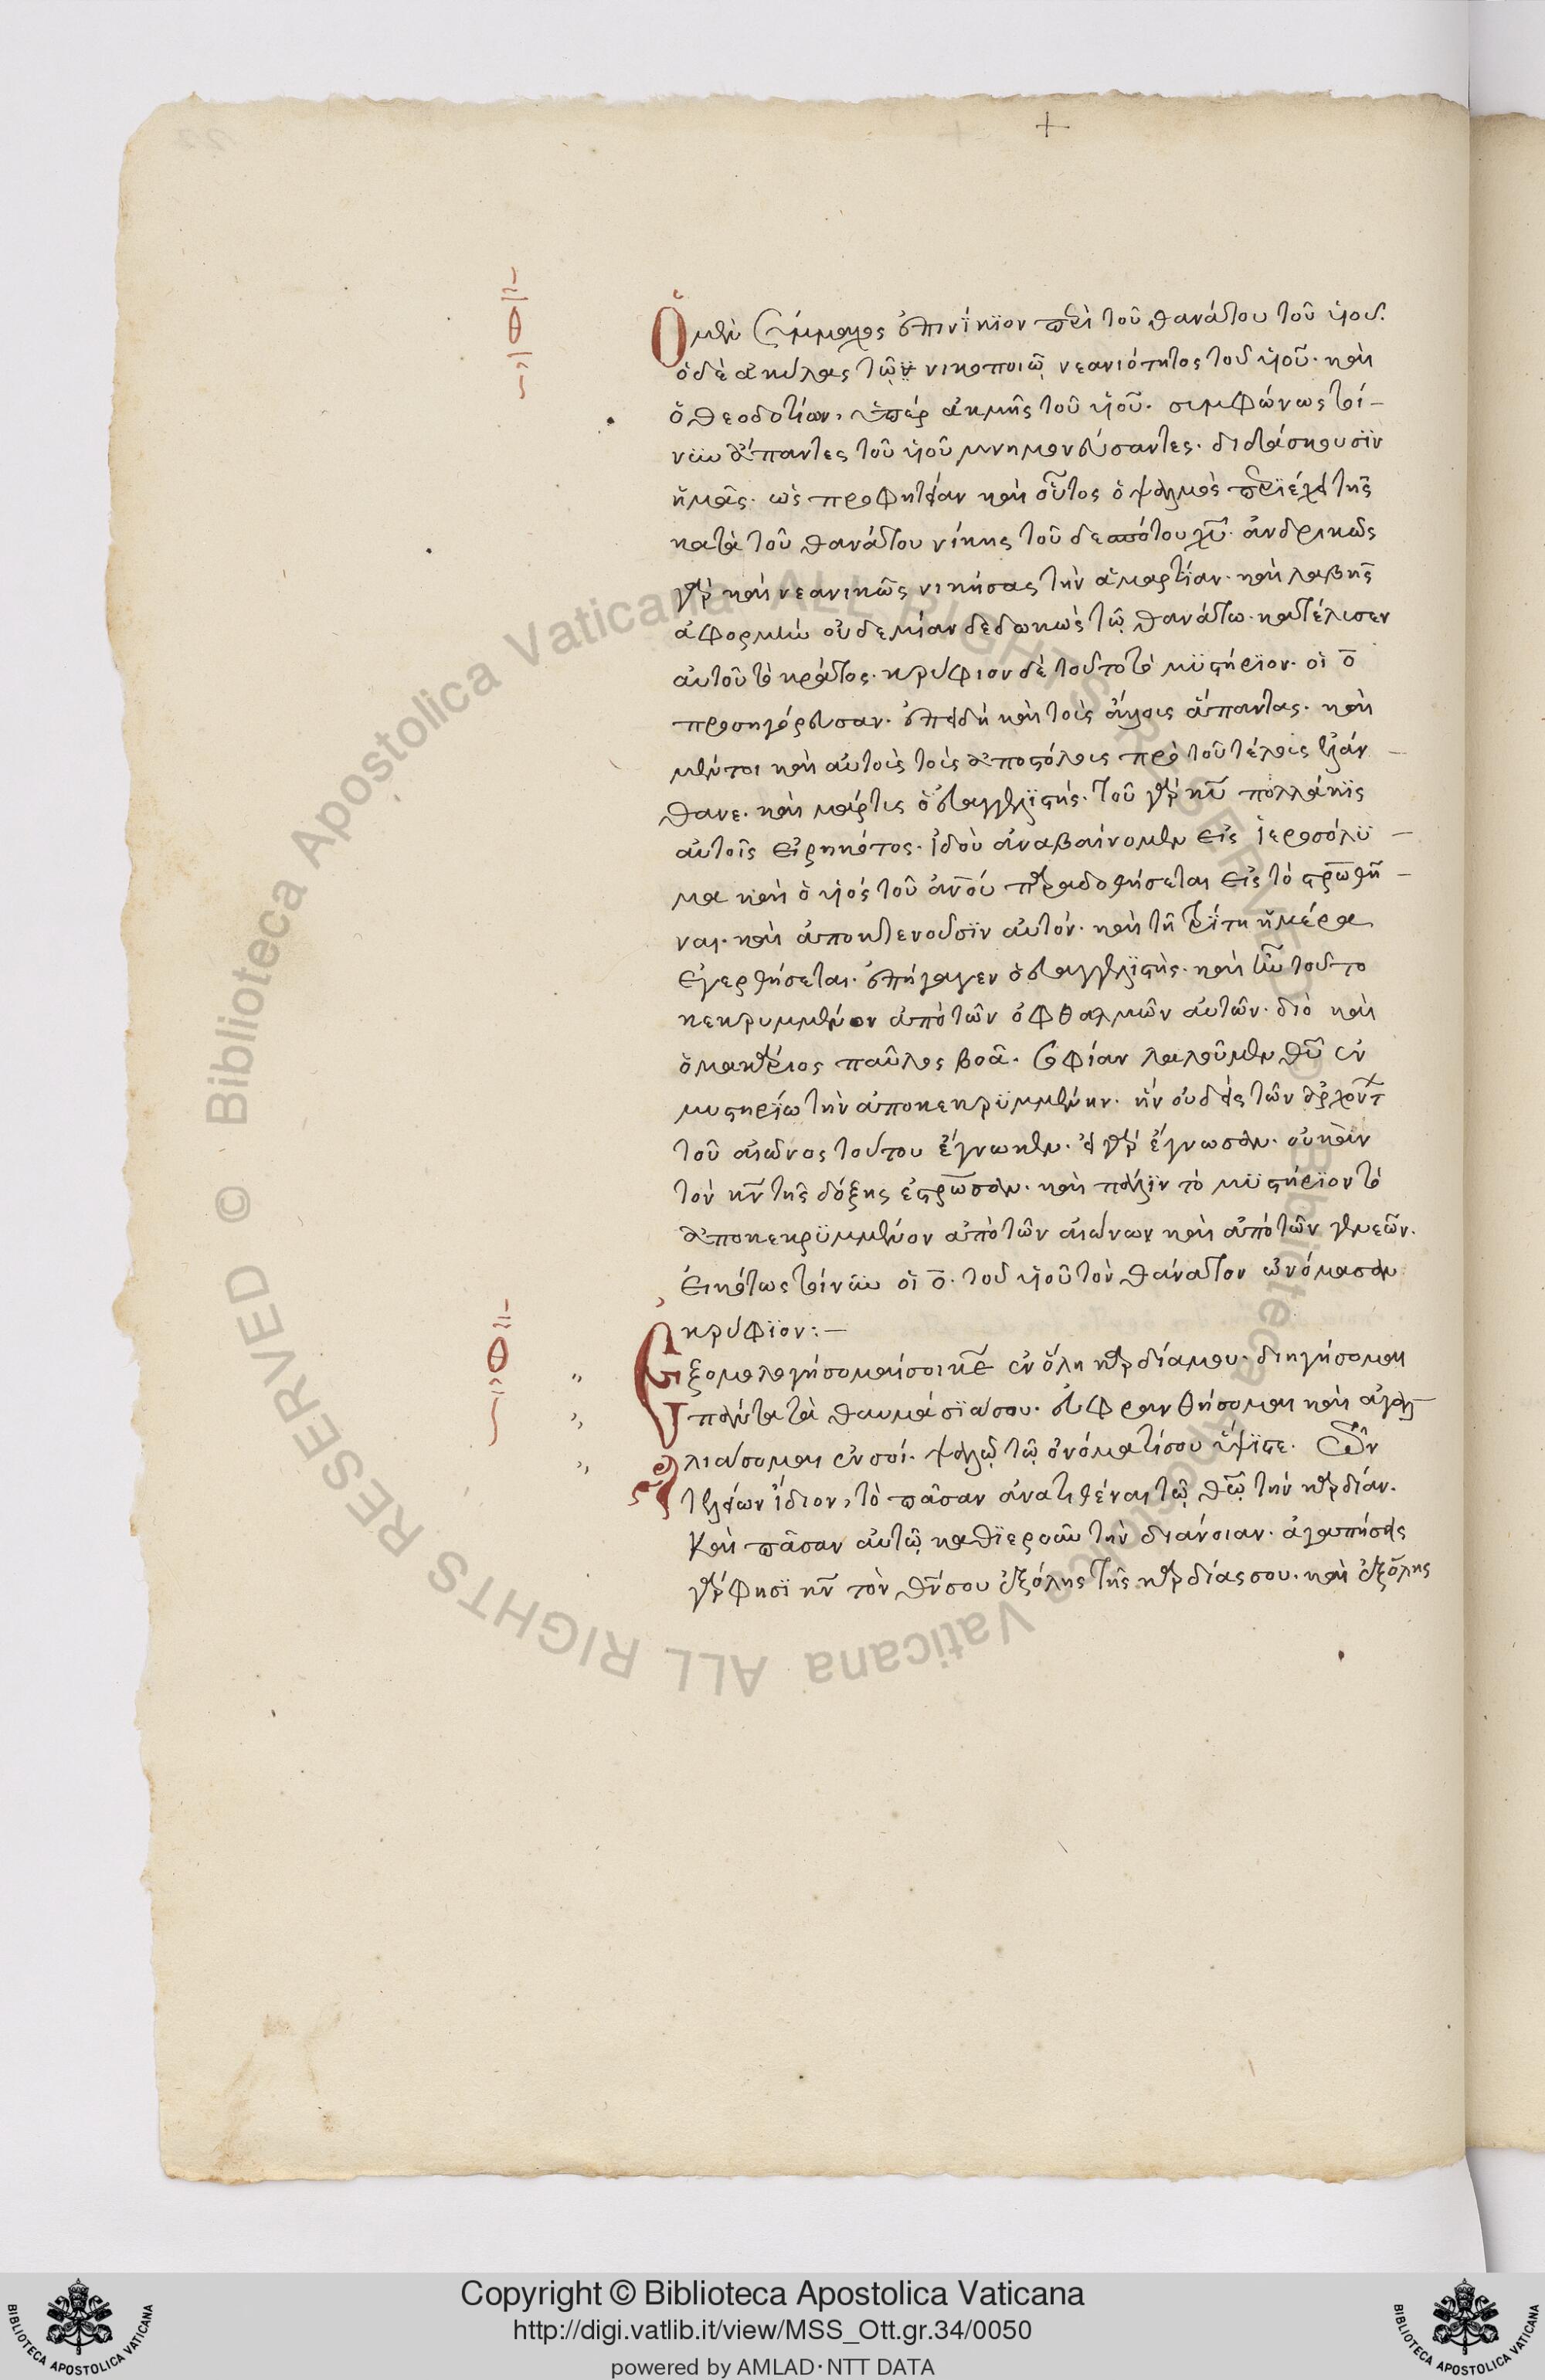 Ὁ μὲν Σύμμαχος ἐπινίκϊον περὶ τοῦ θανάτου τοῦ υἱοῦ.
ὁ δὲ ἀκύλας τῷ νικοποιῷ νεανιότητος τοῦ υἱοῦ. καὶ
ὁ θεοδοτίων, ὑπὲρ ἀκμῆς τοῦ υἱοῦ. συμφώνως τοί-
νυν ἅπαντες τοῦ υἱοῦ μνημονεύσαντες. διδάσκουσϊν
ἡμᾶς. ὡς προφητείαν καὶ οὗτος ὁ ψαλμὸς περϊέχει τῆς
κατὰ τοῦ θανάτου νίκης τοῦ δεσπότου χυ. ἀνδρικῶς
γὰρ καὶ νεανικῶς νικήσας τὴν ἁμαρτίαν. καὶ λαβῆς
ἀφορμὴν οὐδεμίαν δεδωκὼς τῷ θανάτω. κατέλυσεν
αὐτοῦ τὸ κράτος. κρύφιον δὲ τοῦτο τὸ μϋστήρϊον. οἱ ο
προσηγόρευσαν. ἐπειδὴ καὶ τοὺς ἄλλοις ἅπαντας. καὶ
μέντοι καὶ αὐτοὺς τοὺς ἀποστόλοις πρὸ τοῦ τέλοις ἐλάν-
θανε. καὶ μάρτις ὁ εὐαγγελϊστής. τοῦ γὰρ κυ πολλάκϊς
αὐτοῖς εἰρηκότος. ἰδοὺ ἀναβαίνομεν εἰς ἱεροσόλϋ-
μα καὶ ὁ υἱὸς τοῦ ἀνου παραδοθήσεται εἰς τὸ στρωθῆ-
ναι. καὶ ἀποκτενοῦσϊν αὐτόν. καὶ τῆ τρίτη ἡμέρα
ἐγερθήσεται. ἐπήγαγεν ὁ εὐαγγελϊστής. καὶ ἦν τοῦτο
κεκρυμμένον ἀπὸ τῶν ὀφθαλμῶν αὐτῶν. διὸ καὶ
ὁ μακάριος παῦλος βοᾶ. σοφίαν λαλοῦμεν θυ ἐν
μυστηρίω τὴν ἀποκεκρϋμμένην. ἣν οὐδεὶς τῶν ἀρχοντ
τοῦ αἰῶνος τούτου ἔγνωκεν. εἰ γὰρ ἔγνωσαν. οὐκ ἂν
τὸν κν τῆς δόξης ἐστρωσαν. καὶ πάλϊν τὸ μϋστήρϊον τὸ
ἀποκεκρϋμμένον ἀπὸ τῶν αἰώνων καὶ ἀπὸ τῶν γενεῶν.
εἰκότως τοίνυν οἱ ο. τοῦ υἱοῦ τὸν θάνατον ὠνόμασαν
κρύφϊον:—
Ἐξομολογήσομαί σοι κε ἐν ὅλη καρδία μου. διηγήσομαι
πάντα τὰ θαυμάσϊά σου. εὐφρανθήσομαι καὶ ἀγαλ-
λιάσομαι ἐν σοί. ψαλῶ τῷ ὀνόματί σου ὕψϊστε. Τῶν
τελείων ἴδιον, τὸ πᾶσαν ἀνατιθέναι τῷ θω τὴν καρδίαν.
Καὶ πᾶσαν αὐτῷ καθϊεροῦν τὴν διάνοιαν. ἀγαπήσεις
γάρ φησϊ κν τὸν θν σου ἐξ ὅλης τῆς καρδίας σου. καὶ ἐξ ὅλης
Copyright © Biblioteca Apostolica Vaticana
http://digi.vatlib.it/view/MSS_Ott.gr.34/0050
powered by AMLAD·NTT DATA
BIBLIOTECA APOSTOLICA VATICANA
BIBLIOTECA APOSTOLICA VATICANA
© Biblioteca Apostolica Vaticana ALL RIGHTS RESERVED © Biblioteca Apostolica Vaticana ALL RIGHTS RESERVED